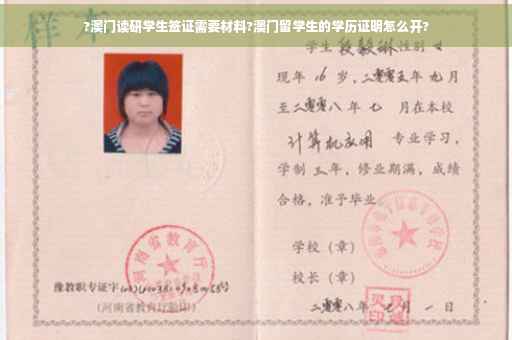 ?澳门读研学生签证需要材料?澳门留学生的学历证明怎么开?
样本
学生段毅琳性别女
现年16岁,二零零五年九月
至二零零八年七月在本校
计算机应用 专业学习,
学制三年,修业期满,成绩
合格,准予毕业
学校(章)
校长(章)
河南省教育厅
豫教职专证字
(河南省教育厅验印)
二零零八年 月一日